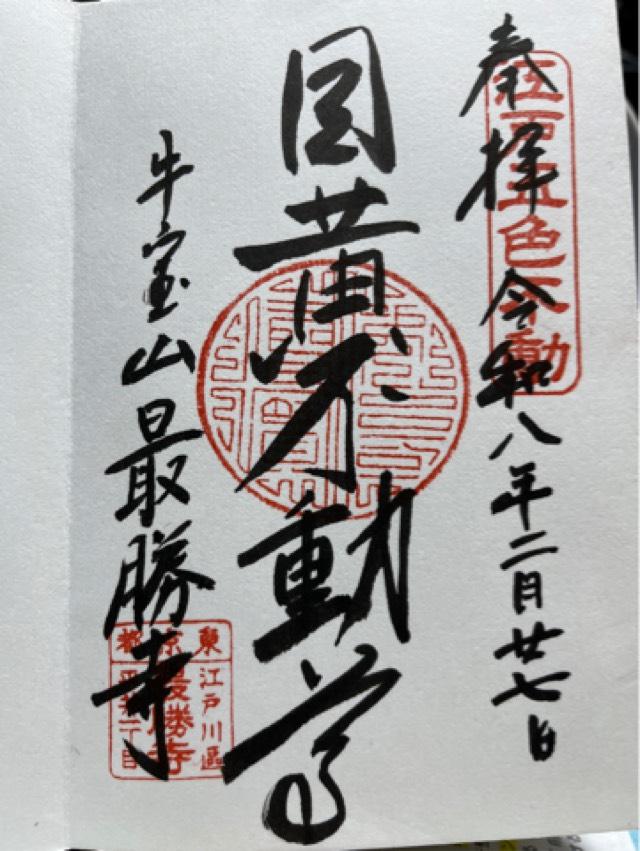 奉拝 令和八年二月廿七日
江戸五色不動
目黄不動尊
牛宝山最勝寺
東京都
江戸川區
最勝寺
平井一丁目